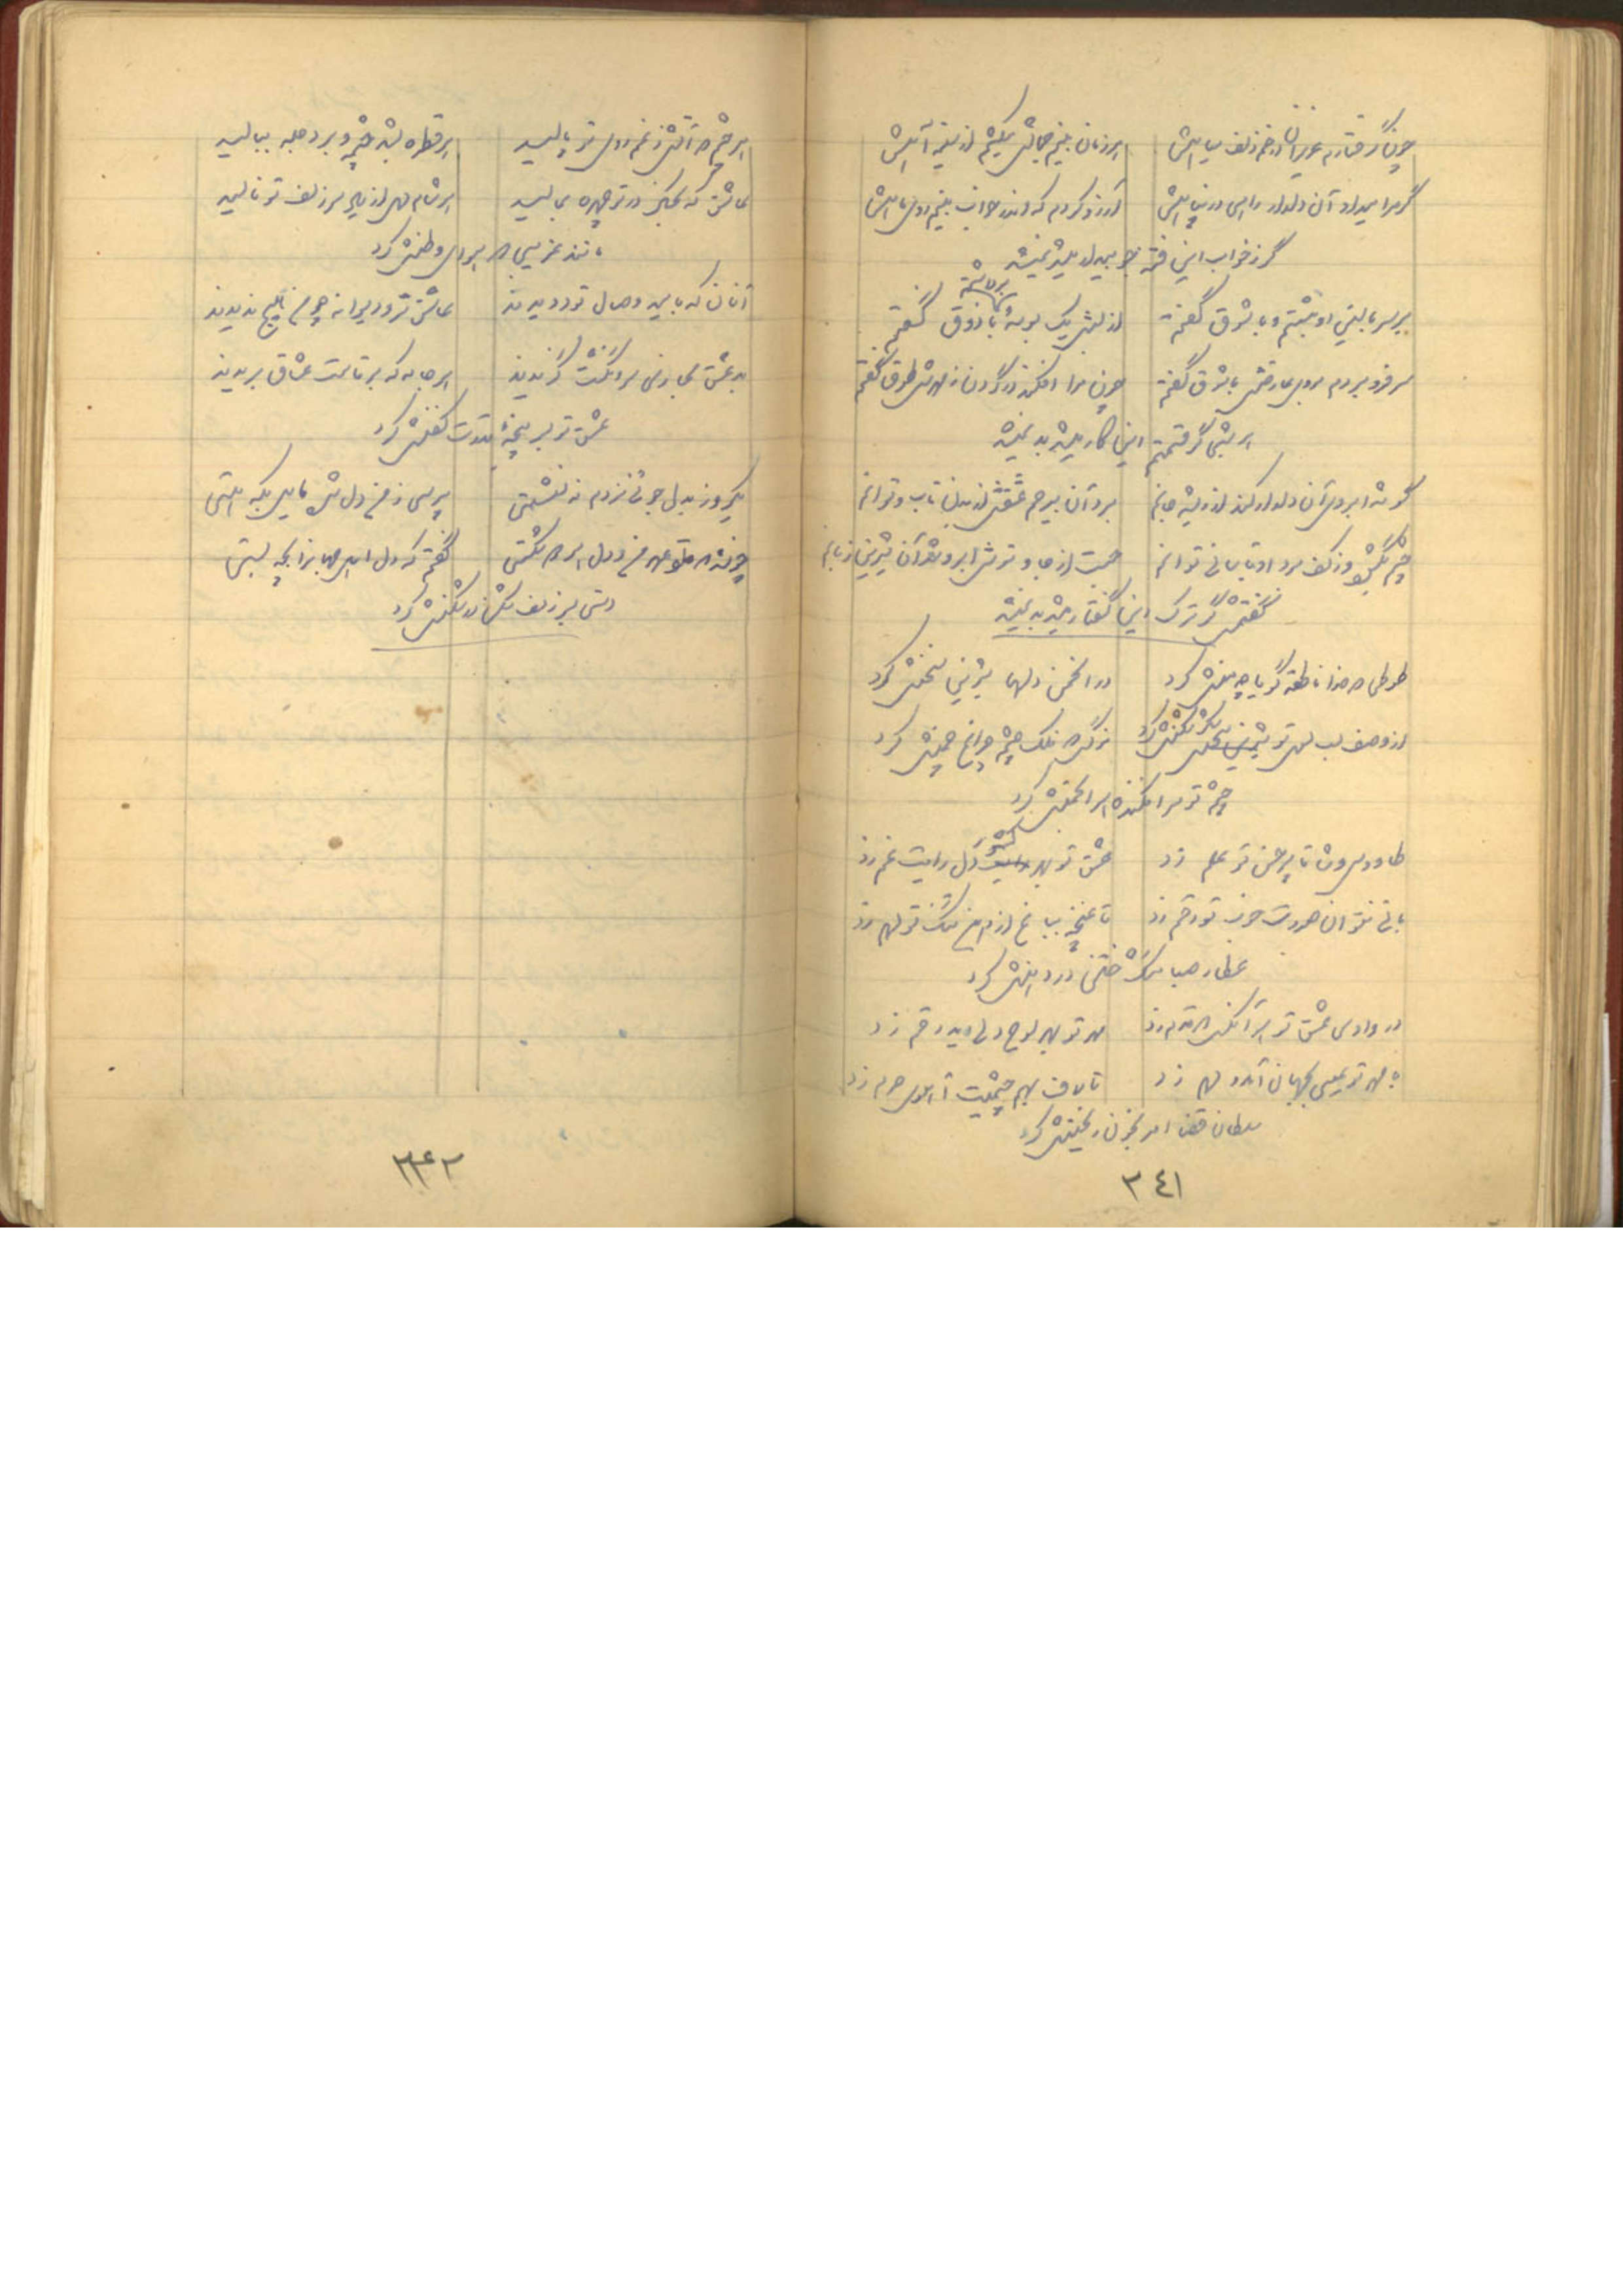 چون گرفتارم عزیزان در خم زلف سیاهش هر زمان بینم جمالش میکشم از سینه آهش
گر مرا میداد آن دلدار راهی در پناهش آرزو کردم که اندر خواب بینم روی ماهش
گر ز خواب این فتنه بیدار میشد نمیشد
بر سر بالین او بنشستم و با شوق گفتم از لبش یک بوسه با ذوق گفتم
سر فرو بردم بروی عارضش با شوق گفتم چون مرا افکند در گردن ز مهرش طوق گفتم
هر شبی گر قسمتم این کار میشد بد نمیشد
گوشه ابروی آن دلدار کند از ریشه جانم برد آن بیرحم عشقش از بدن تاب و توانم
چشم مستش وز کف برد او توانم جست از جا و ترش ابرو نمود آن شیرین زبانم
گفتمش گر ترک این گفتار میشد بد نمیشد
طوطی که خدا ناطقه گویا چو منش کرد در انجمن دلها شیرین سخنش کرد
از وصف لب لعل تو شکر شکنش کرد نرگس که فلک چشم و چراغ چمنش کرد
چشم تو سرافکنده هر انجمنش کرد
طاووس وش تا پر حسن تو علم زد عشق تو بهر کشور دل رایت غم زد
مانی نتوان صورت خوب تو رقم زد تا غنچه بباغ از دهن تنگ تو دم زد
عطار صبا مشک ختن در دهنش کرد
در وادی عشق تو هر آنکس که قدم زد مهر تو بهر لوح دلی رقم زد
مهر تو عیسی بجهان آمد و دم زد تا لاف بهم چشمیت آهوی حرم زد
سلطان قضا امر بخون ریختنش کرد
۳٤۱
هر چشم که آتش ز غم روی تو پالید هر قطره بشد چشمه و بر دجله ببالید
عاشق که بخاک در تو چهره بمالید هر شام دل از یاد سر زلف تو نالید
مانند غریبی که هوای وطنش کرد
آنان که بامید وصال تو دویدند عاشق تر و دیوانه چو من هیچ ندیدند
به عشق مجازی سر انگشت گزیدند هر جامه که بر قامت عشاق بریدند
عشق تو بسر پنجه قدرت کفنش کرد
یکروز بدلجوئی نزدم ننشستی پرسی ز من دل شده مایل بکه هستی
گفتم که دل اهلی بیچاره چه بستی
دستی بسر زلف شکن در شکنش کرد
۳۴۲